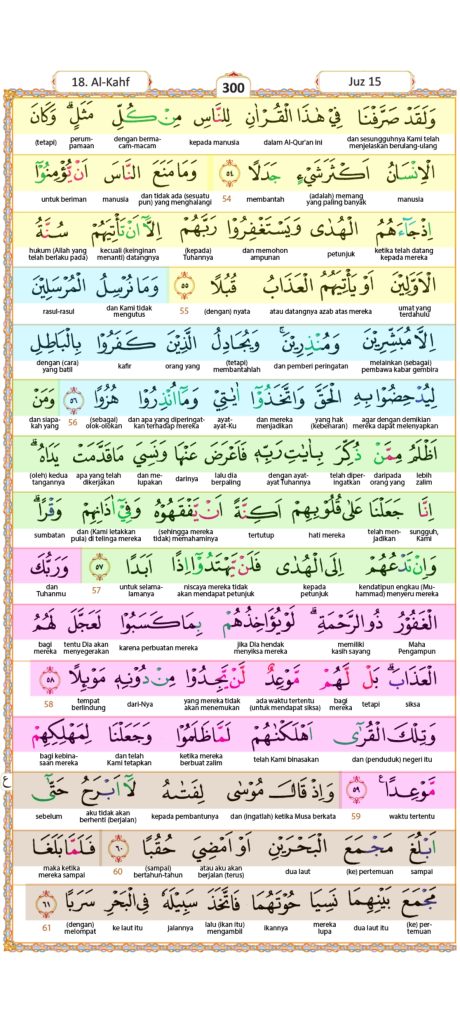 18. Al-Kahf
300
Juz 15
وَلَقَدْ صَرَّفْنَا فِيْ هٰذَا الْقُرْاٰنِ لِلنَّاسِ مِنْ كُلِّ مَثَلٍۗ وَكَانَ
dan sesungguhnya Kami telah menjelaskan berulang-ulang dalam Al-Qur'an ini kepada manusia dengan berma-cam-macam perum-pamaan (tetapi)
الْاِنْسَانُ اَكْثَرَ شَيْءٍ جَدَلًا ٥٤ وَمَا مَنَعَ النَّاسَ اَنْ يُّؤْمِنُوْٓا
manusia (adalah) memang yang paling banyak membantah 54 dan tidak ada (sesuatu pun) yang menghalangi manusia untuk beriman
اِذْ جَاۤءَهُمُ الْهُدٰى وَيَسْتَغْفِرُوْا رَبَّهُمْ اِلَّآ اَنْ تَأْتِيَهُمْ سُنَّةُ
ketika telah datang kepada mereka petunjuk dan memohon ampunan (kepada) Tuhannya kecuali (keinginan menanti) datangnya hukum (Allah yang telah berlaku pada)
الْاَوَّلِيْنَ اَوْ يَأْتِيَهُمُ الْعَذَابُ قُبُلًا ٥٥ وَمَا نُرْسِلُ الْمُرْسَلِيْنَ
umat yang terdahulu atau datangnya azab atas mereka (dengan) nyata 55 dan Kami tidak mengutus rasul-rasul
اِلَّا مُبَشِّرِيْنَ وَمُنْذِرِيْنَۚ وَيُجَادِلُ الَّذِيْنَ كَفَرُوْا بِالْبَاطِلِ
melainkan (sebagai) pembawa kabar gembira dan pemberi peringatan (tetapi) membantahlah orang yang kafir dengan (cara) yang batil
لِيُدْحِضُوْا بِهِ الْحَقَّ وَاتَّخَذُوْٓا اٰيٰتِيْ وَمَآ اُنْذِرُوْا هُزُوًا ٥٦ وَمَنْ
agar dengan demikian mereka dapat melenyapkan yang hak (kebenaran) dan mereka menjadikan ayat-ayat-Ku dan apa yang diperingat-kan terhadap mereka (sebagai) olok-olokan 56 dan siapa-kah yang
اَظْلَمُ مِمَّنْ ذُكِّرَ بِاٰيٰتِ رَبِّهٖ فَاَعْرَضَ عَنْهَا وَنَسِيَ مَا قَدَّمَتْ يَدَاهُۗ
lebih zalim daripada orang yang telah diper-ingatkan dengan ayat-ayat Tuhannya lalu dia berpaling darinya dan me-lupakan apa yang telah dikerjakan (oleh) kedua tangannya
اِنَّا جَعَلْنَا عَلٰى قُلُوْبِهِمْ اَكِنَّةً اَنْ يَّفْقَهُوْهُ وَفِيْٓ اٰذَانِهِمْ وَقْرًاۗ
sungguh, Kami telah men-jadikan hati mereka tertutup (sehingga mereka tidak) memahaminya dan (Kami letakkan pula) di telinga mereka sumbatan
وَاِنْ تَدْعُهُمْ اِلَى الْهُدٰى فَلَنْ يَّهْتَدُوْٓا اِذًا اَبَدًا ٥٧ وَرَبُّكَ
kendatipun engkau (Mu-hammad) menyeru mereka kepada petunjuk niscaya mereka tidak akan mendapat petunjuk untuk selama-lamanya 57 dan Tuhanmu
الْغَفُوْرُ ذُو الرَّحْمَةِۗ لَوْ يُؤَاخِذُهُمْ بِمَا كَسَبُوْا لَعَجَّلَ لَهُمُ
Maha Pengampun memiliki kasih sayang jika Dia hendak menyiksa mereka karena perbuatan mereka tentu Dia akan menyegerakan bagi mereka
الْعَذَابَۗ بَلْ لَّهُمْ مَّوْعِدٌ لَّنْ يَّجِدُوْا مِنْ دُوْنِهٖ مَوْىِٕلًا ٥٨
siksa tetapi bagi mereka ada waktu tertentu (untuk mendapat siksa) yang mereka tidak akan menemukan dari-Nya tempat berlindung 58
وَتِلْكَ الْقُرٰٓى اَهْلَكْنٰهُمْ لَمَّا ظَلَمُوْا وَجَعَلْنَا لِمَهْلِكِهِمْ
dan (penduduk) negeri itu telah Kami binasakan ketika mereka berbuat zalim dan telah Kami tetapkan bagi kebina-saan mereka
ع
مَّوْعِدًا ٥٩ وَاِذْ قَالَ مُوْسٰى لِفَتٰىهُ لَآ اَبْرَحُ حَتّٰٓى
waktu tertentu 59 dan (ingatlah) ketika Musa berkata kepada pembantunya aku tidak akan berhenti (berjalan) sebelum
اَبْلُغَ مَجْمَعَ الْبَحْرَيْنِ اَوْ اَمْضِيَ حُقُبًا ٦٠ فَلَمَّا بَلَغَا
sampai (ke) pertemuan dua laut atau aku akan berjalan (terus) (sampai) bertahun-tahun 60 maka ketika mereka sampai
مَجْمَعَ بَيْنِهِمَا نَسِيَا حُوْتَهُمَا فَاتَّخَذَ سَبِيْلَهٗ فِى الْبَحْرِ سَرَبًا ٦١
(ke) per-temuan dua laut itu mereka lupa ikannya lalu (ikan itu) mengambil jalannya ke laut itu (dengan) melompat 61